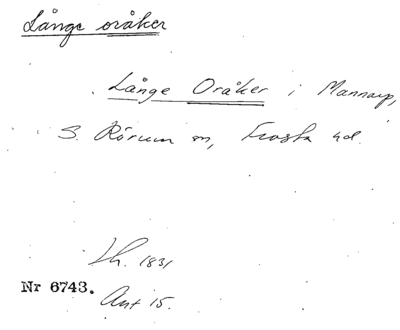 Långe oråker
Långe Oråker i Mannarp,
S. Rörum sn, Frosta hd.
Lh. 1831
Nr 6743.
Ant 15.